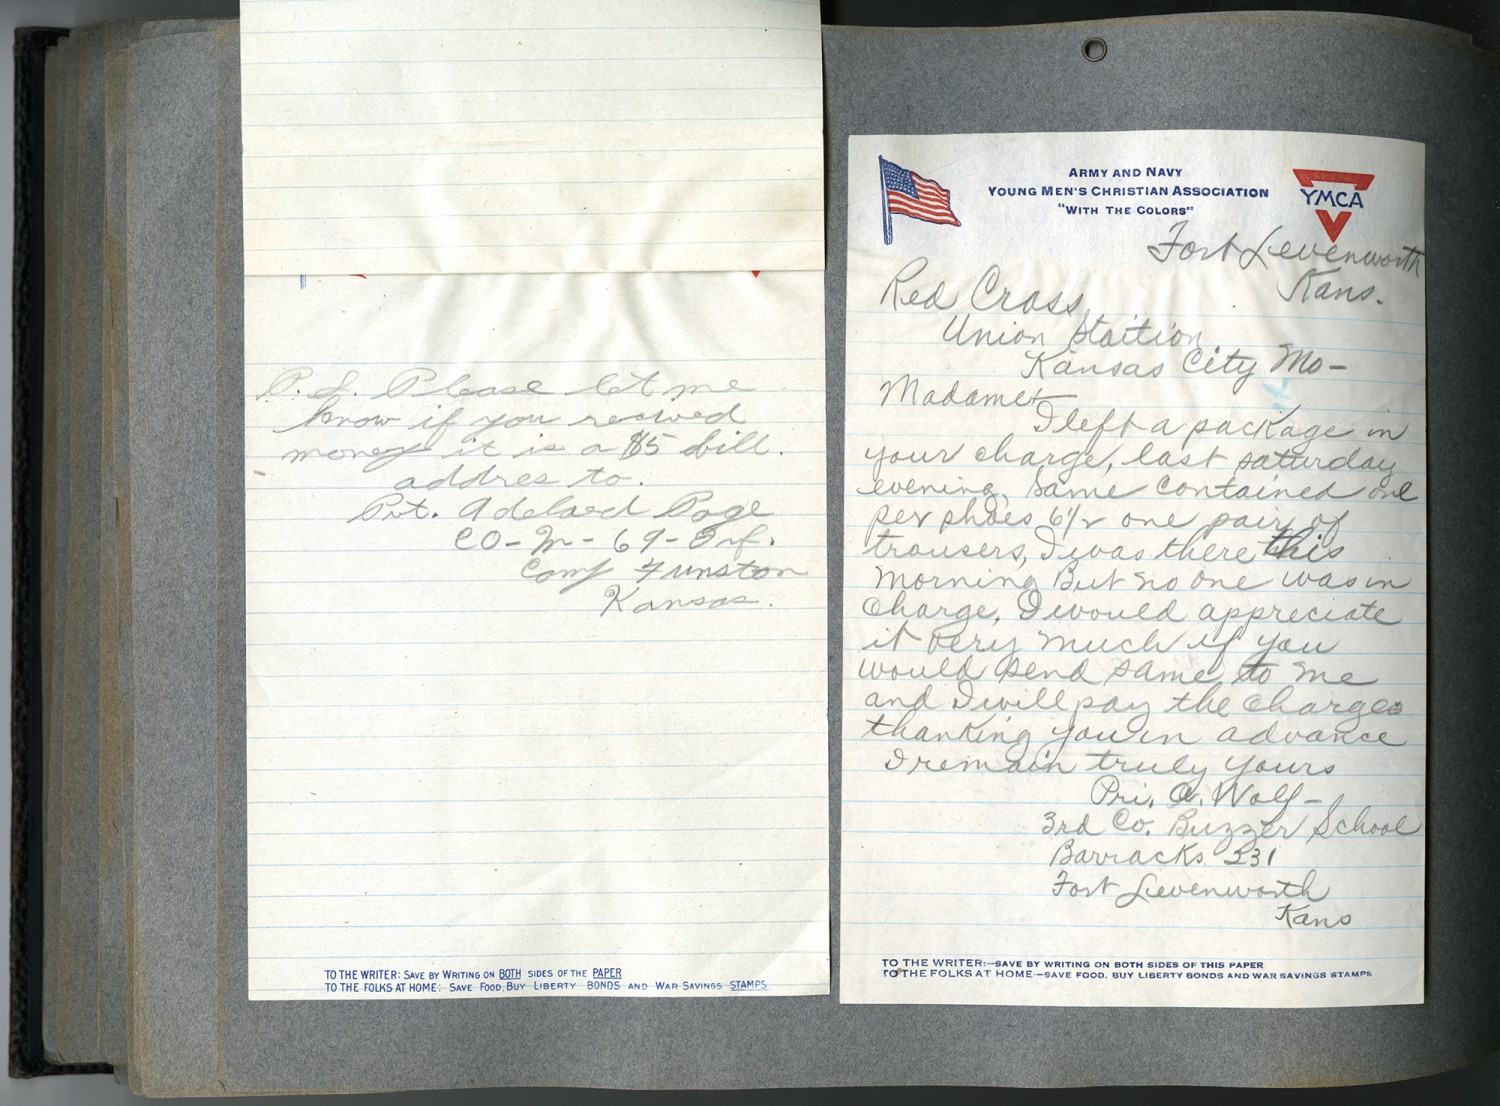 P.S. Please let me
know if you recived
money it is a $5 bill.
addres to.
Pvt. Adelard Page
CO-M-69-Inf.
Camp Funston
Kansas.
TO THE WRITER: SAVE BY WRITING ON BOTH SIDES OF THE PAPER
TO THE FOLKS AT HOME: SAVE FOOD, BUY LIBERTY BONDS AND WAR SAVINGS STAMPS
ARMY AND NAVY
YOUNG MEN'S CHRISTIAN ASSOCIATION
"WITH THE COLORS"
YMCA
Fort Levenworth
Kans.
Red Cross,
Union Staition
Kansas City Mo-
Madame
I left a package in
your charge, last saturday
evening, Same Contained one
per shoes 6½ one pair of
trousers, I was there this
morning But no one was in
Charge, I would appreciate
it very much if you
would send same to me
and I will pay the charges
thanking you in advance
I remain truly yours
Pri. A. Wolf-
3rd Co. Buzzer School
Barracks 231
Fort Levenworth
Kans
TO THE WRITER:-SAVE BY WRITING ON BOTH SIDES OF THIS PAPER
TO THE FOLKS AT HOME-SAVE FOOD, BUY LIBERTY BONDS AND WAR SAVINGS STAMPS